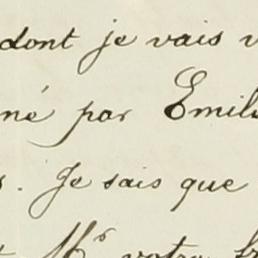 dont je vais
né par Emil
. Je sais que
Mr votre fr